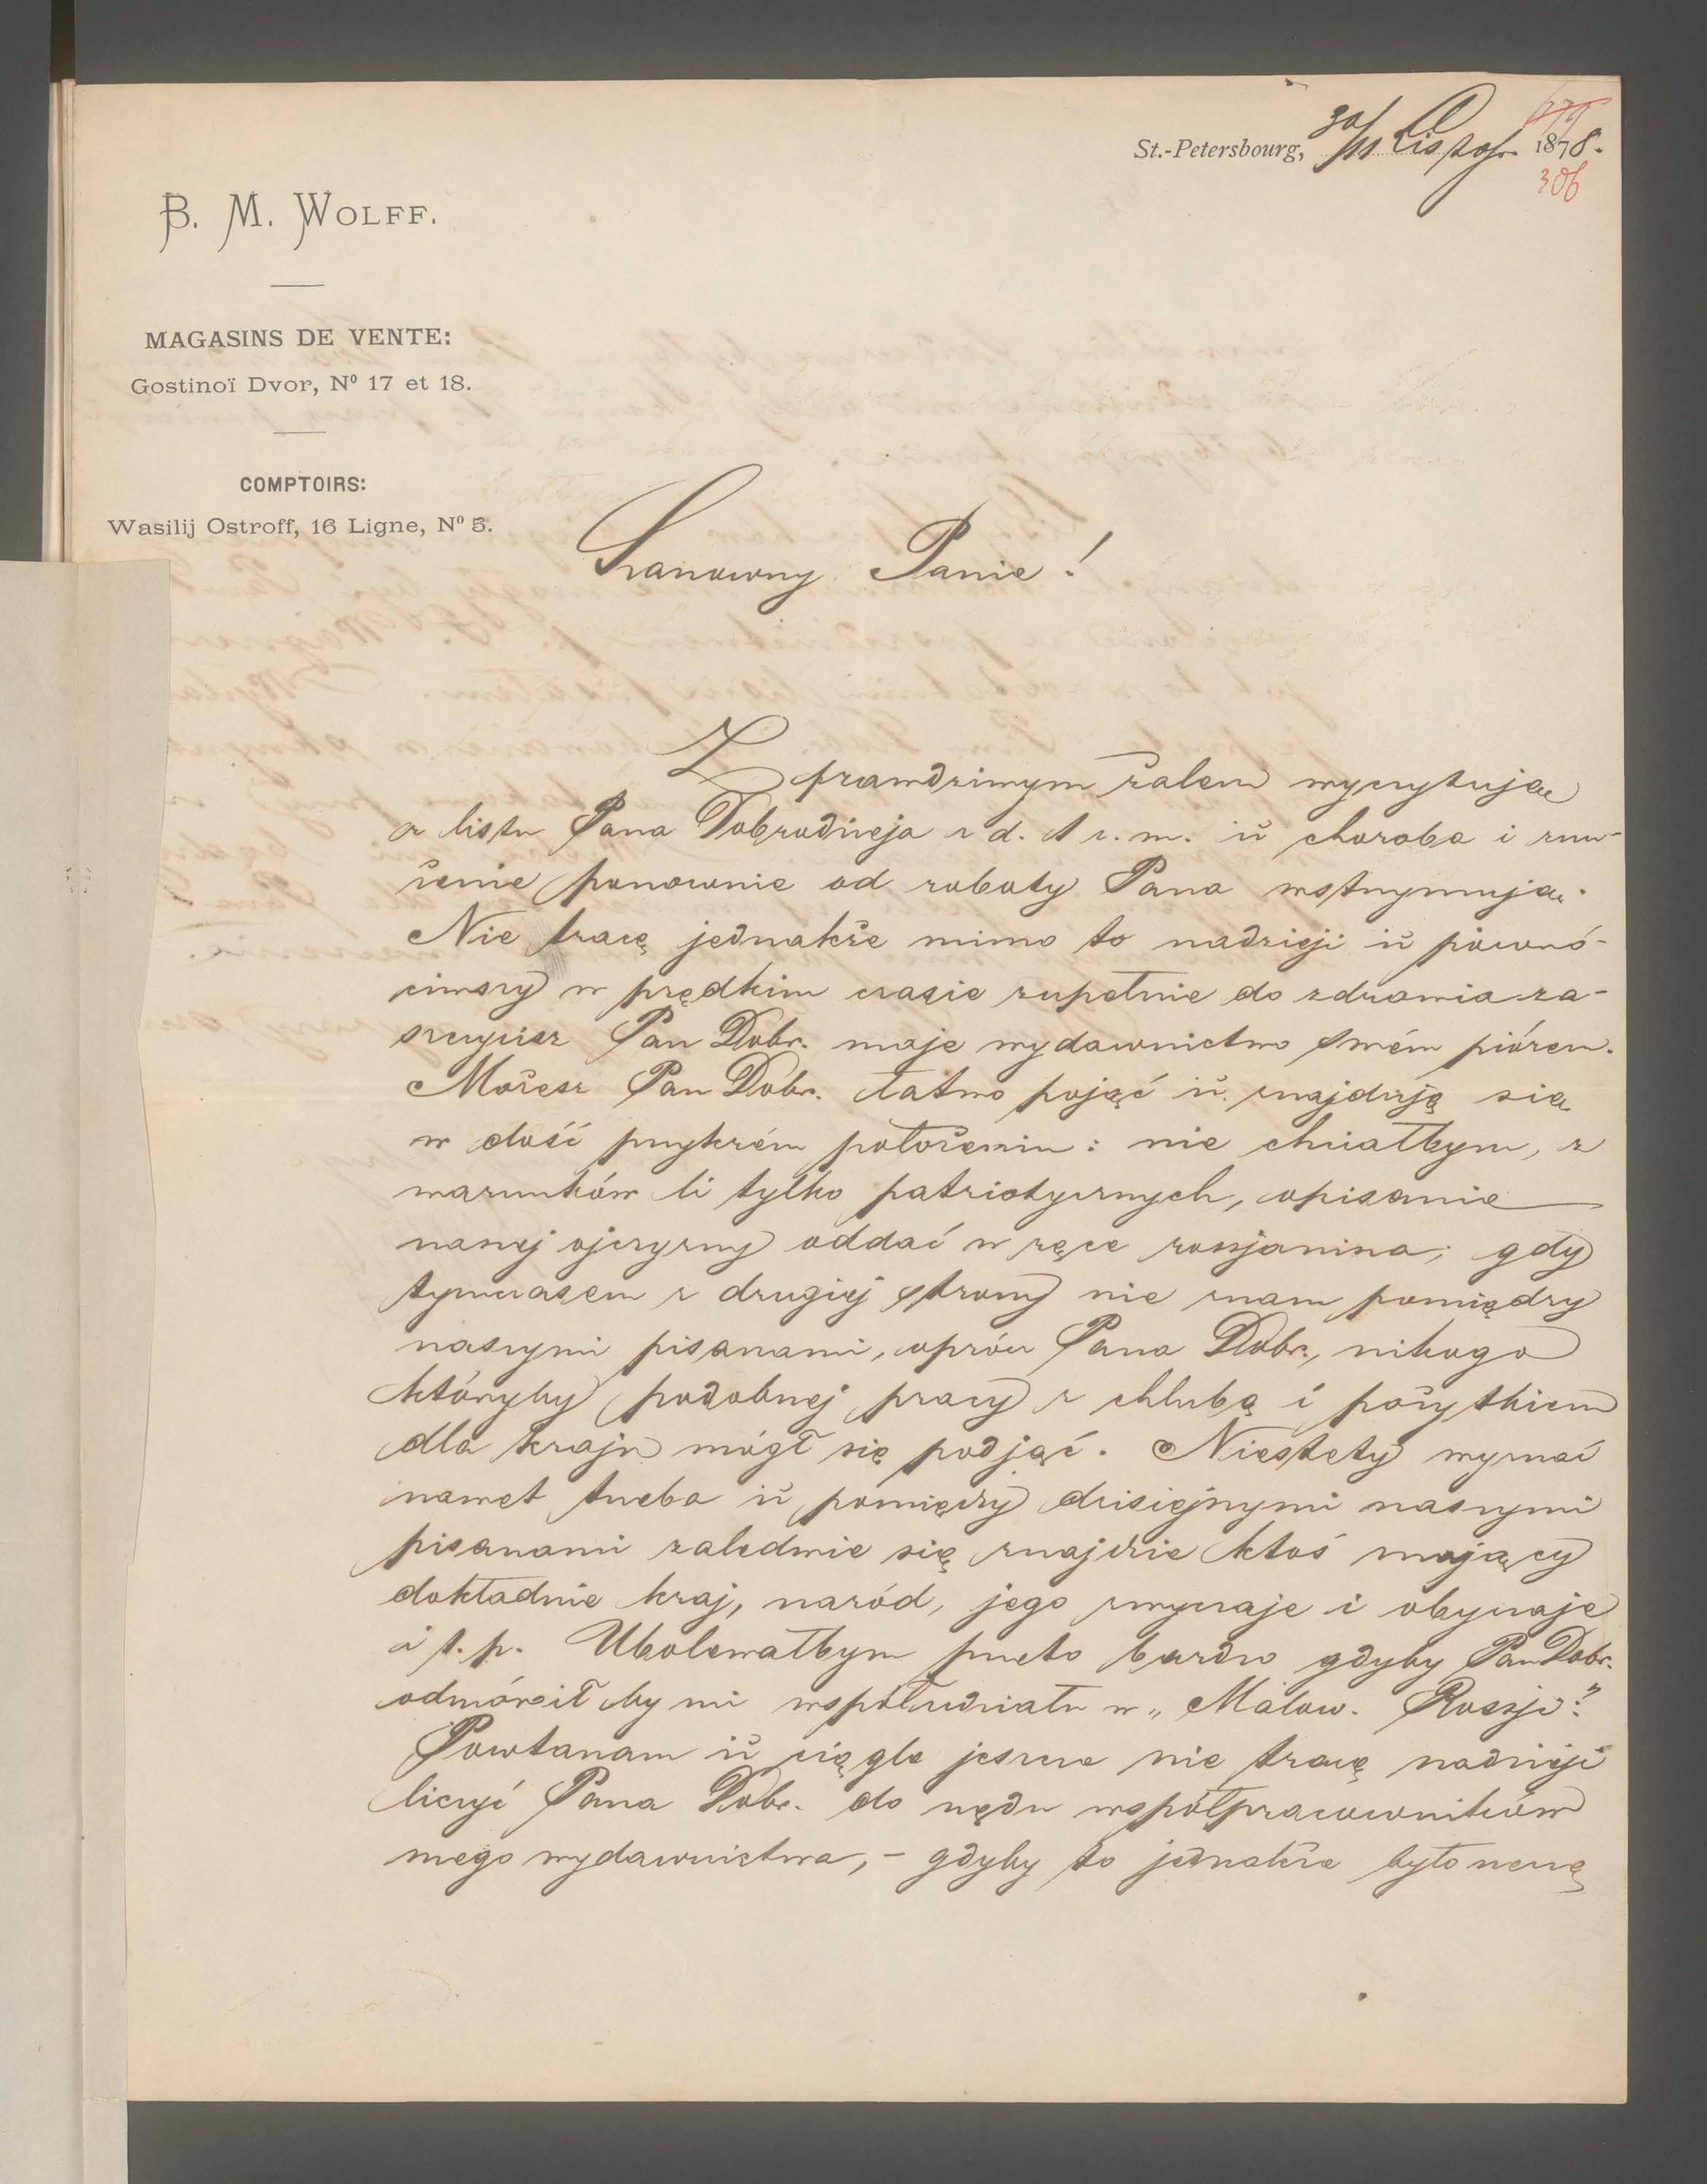 St.-Petersbourg, 30/11 Listop. 1878.
306
B. M. WOLFF.
MAGASINS DE VENTE:
Gostinoï Dvor, Nº 17 et 18.
COMPTOIRS:
Wasilij Ostroff, 16 Ligne, Nº 5.
Szanowny Panie!
Z prawdziwym żalem wyczytuję
z listu Pana Dobrodzieja z d. 1 z. m. iż choroba i znu-
żenie ponownie od roboty Pana wstrzymują.
Nie tracę jednakże mimo to nadzieji iż powró-
ciwszy w prędkim czasie zupełnie do zdrowia za-
szczycisz Pan Dobr. moje wydawnictwo swém piórem.
Możesz Pan Dobr. łatwo pojąć iż znajduję się
w dość przykrém położeniu: nie chciałbym, z
warunków li tylko patriotycznych, opisanie
naszej ojczyzny oddać w ręce rossjanina; gdy
tymczasem z drugiéj strony nie znam pomiędzy
naszymi pisarzami, oprócz Pana Dobr., nikogo
któryby podobnej pracy z chlubą i pożytkiem
dla kraju mógł się podjąć. Niestety wyznać
nawet trzeba iż pomiędzy dzisiejszymi naszymi
pisarzami zaledwie się znajdzie ktoś znający
dokładnie kraj, naród, jego zwyczaje i obyczaje
i t. p. Ubolewałbym przeto bardzo gdyby Pan Dobr.
odmówił by mi współudziału w „Malow. Rossji".
Powtarzam iż ciągle jeszcze nie tracę nadzieji
liczyć Pana Dobr. do rzędu współpracowników
mego wydawnictwa, – gdyby to jednakże było rzeczą